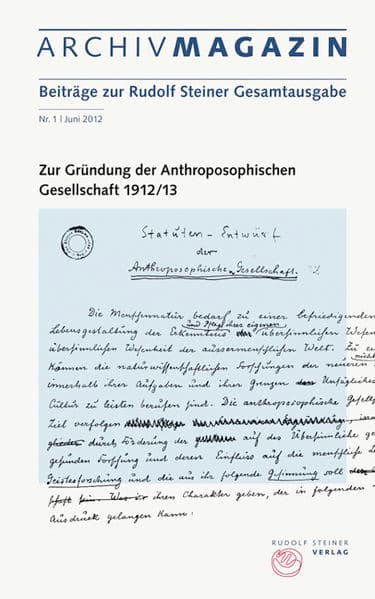 ARCHIVMAGAZIN
Beiträge zur Rudolf Steiner Gesamtausgabe
Nr. 1 | Juni 2012
Zur Gründung der Anthroposophischen
Gesellschaft 1912/13
Statuten-Entwurf
der
Anthroposophischen Gesellschaft.
Die Menschennatur bedarf zu einer befriedigenden
und Pflege ihres eigenen
Lebensgestaltung der Erkenntnis übersinnlichen Wesens
übersinnlichen Wesenheit der aussermenschlichen Welt. Zu
können die naturwissenschaftlichen Forschungen der neueren
nicht
innerhalb ihrer Aufgaben und ihrer Grenzen Unsägliches
Cultur zu leisten berufen sind. Die anthroposophische Gesells
Ziel verfolgen
durch Förderung der auf das Übersinnliche ge
gesunden Forschung und deren Einfluss auf die menschliche
Geistesforschung und die aus ihr folgende Gesinnung soll
ihren Charakter geben, der in folgenden
Ausdruck gelangen kann:
RUDOLF STEINER
VERLAG